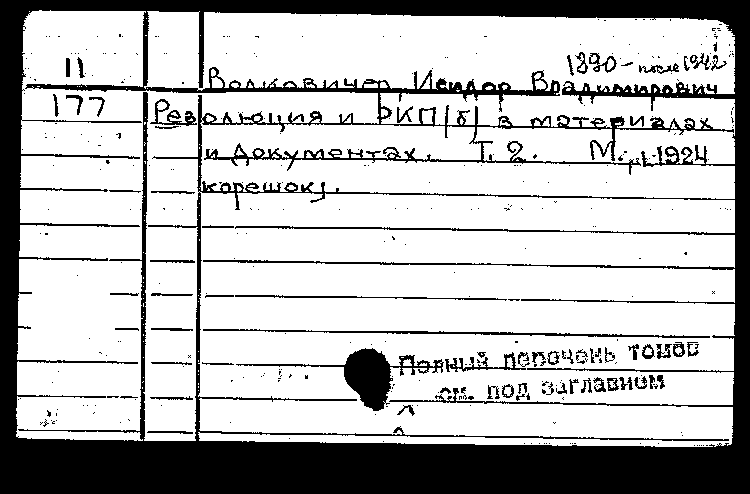 11
1890 - после 1942
Волковичер, Исидор Владимирович
177
Революция и РКП(б) в материалах
и документах. Т. 2. М., 1924
корешок).
Полный перечень томов
см. под заглавием